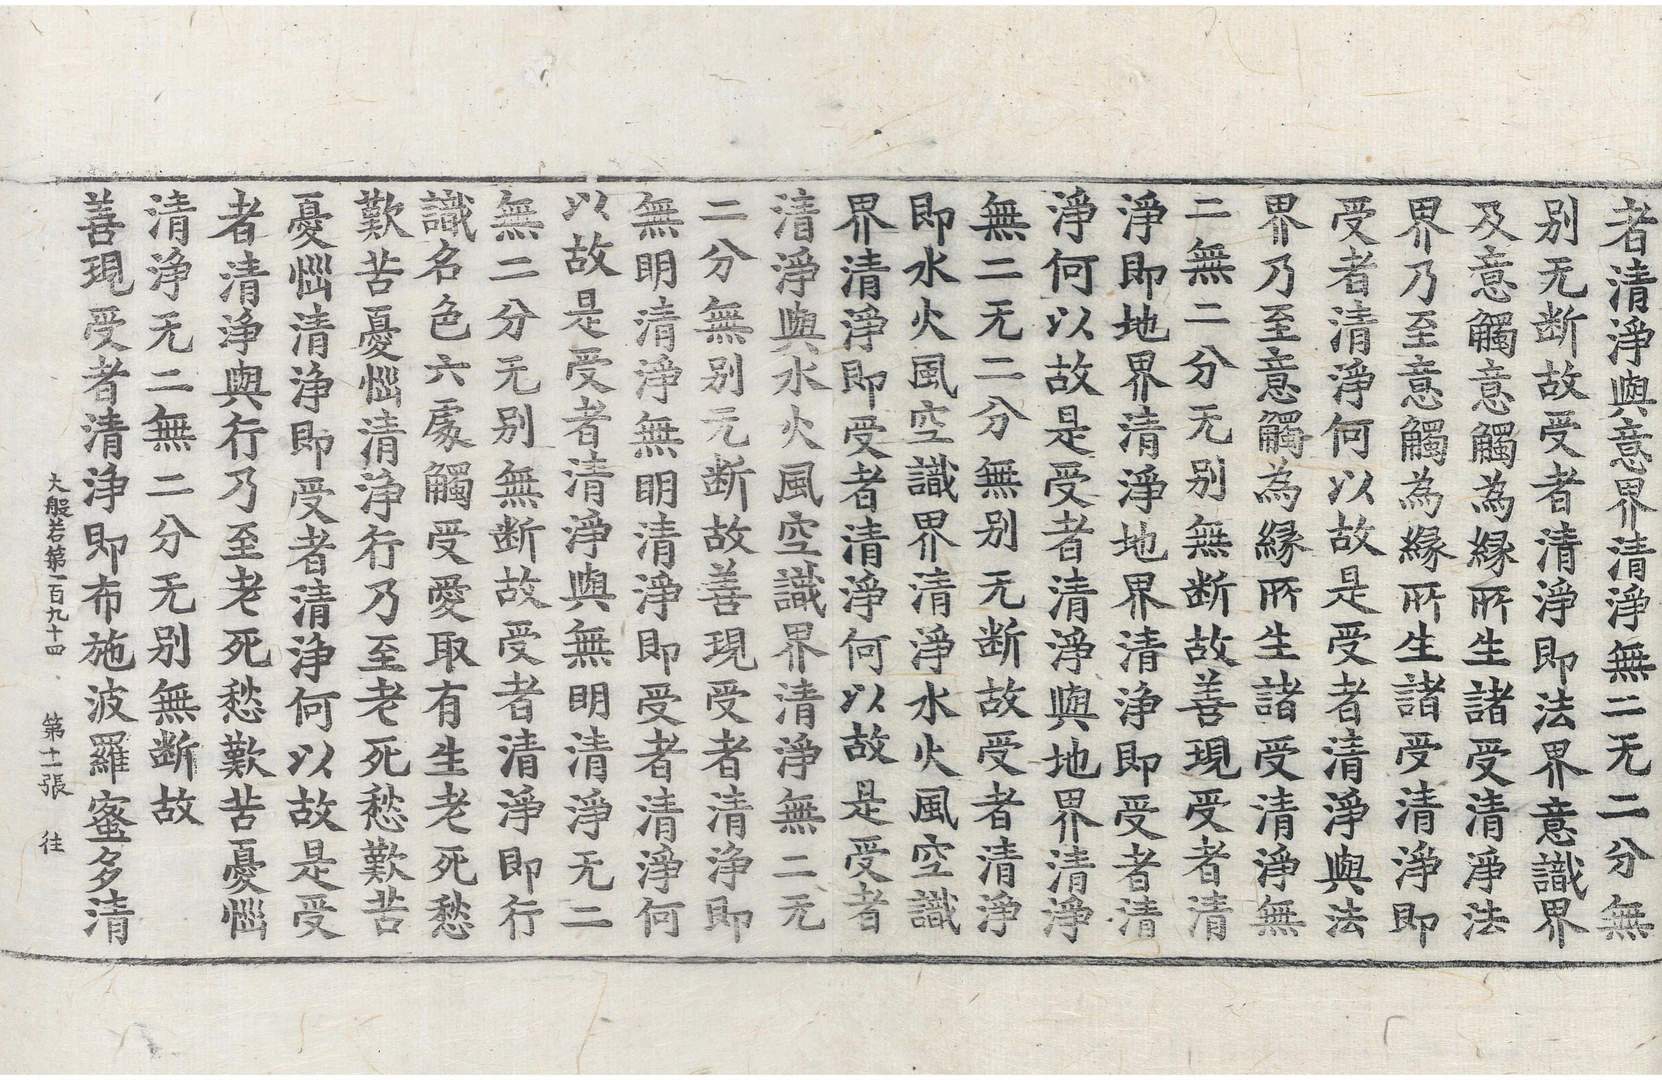 者清淨與意界清淨無二无二分無
别无断故受者清淨即法界意識界
及意觸意觸為縁所生諸受清淨法
界乃至意觸為縁所生諸受清淨即
受者清淨何以故是受者清淨與法
界乃至意觸為縁所生諸受清淨無
二無二分无别無断故善現受者清
淨即地界清淨地界清淨即受者清
淨何以故是受者清淨與地界清淨
無二无二分無别无断故受者清淨
即水火風空識界清淨水火風空識
界清淨即受者清淨何以故是受者
清淨與水火風空識界清淨無二无
二分無别无断故善現受者清淨即
無眀清淨無眀清淨即受者清淨何
以故是受者清淨與無眀清淨无二
無二分无别無断故受者清淨即行
識名色六處觸受愛取有生老死愁
歎苦憂惱清淨行乃至老死愁歎苦
憂惱清淨即受者清淨何以故是受
者清淨與行乃至老死愁歎苦憂惱
清淨无二無二分无别無断故
善現受者清淨即布施波羅蜜多清
大般若第一百九十四 第十一張 往